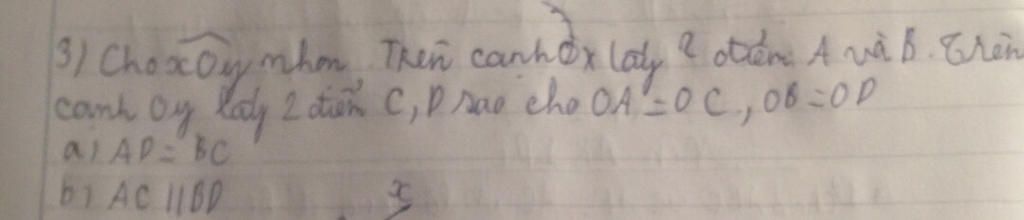 3) Cho xOy nhọn. Trên cạnh Ox lấy 2 điểm A và B. Trên
cạnh Oy lấy 2 điểm C, D sao cho OA = OC, OB = OD
a) AD = BC
b) AC // BD
x